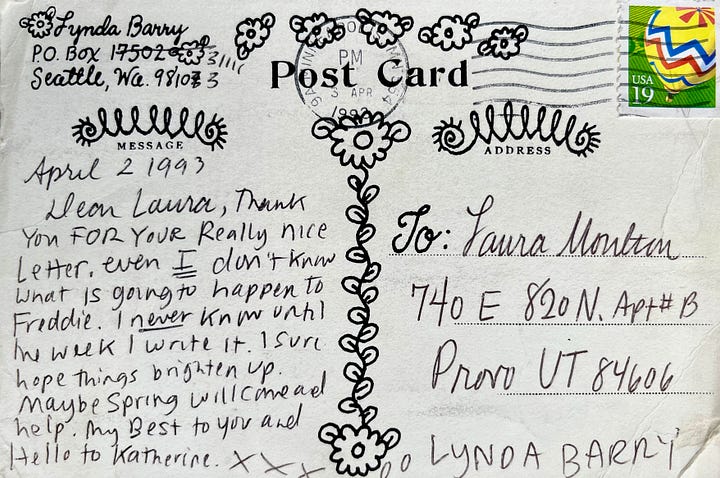 Lynda Barry
P.O. Box 17502 3111
Seattle, Wa. 98103
Post Card
PM
3 APR
1993
USA
19
MESSAGE
April 2 1993
Dear Laura, Thank
You FOR YOUR Really nice
Letter. even I don't know
what is going to happen to
Freddie. I never know until
the week I write it. I sure
hope things brighten up.
Maybe Spring will come and
help. My Best to you and
Hello to Katherine. XXX
OO LYNDA BARRY
ADDRESS
To: Laura Moulton
740 E 820 N. Apt# B
Provo UT 84606